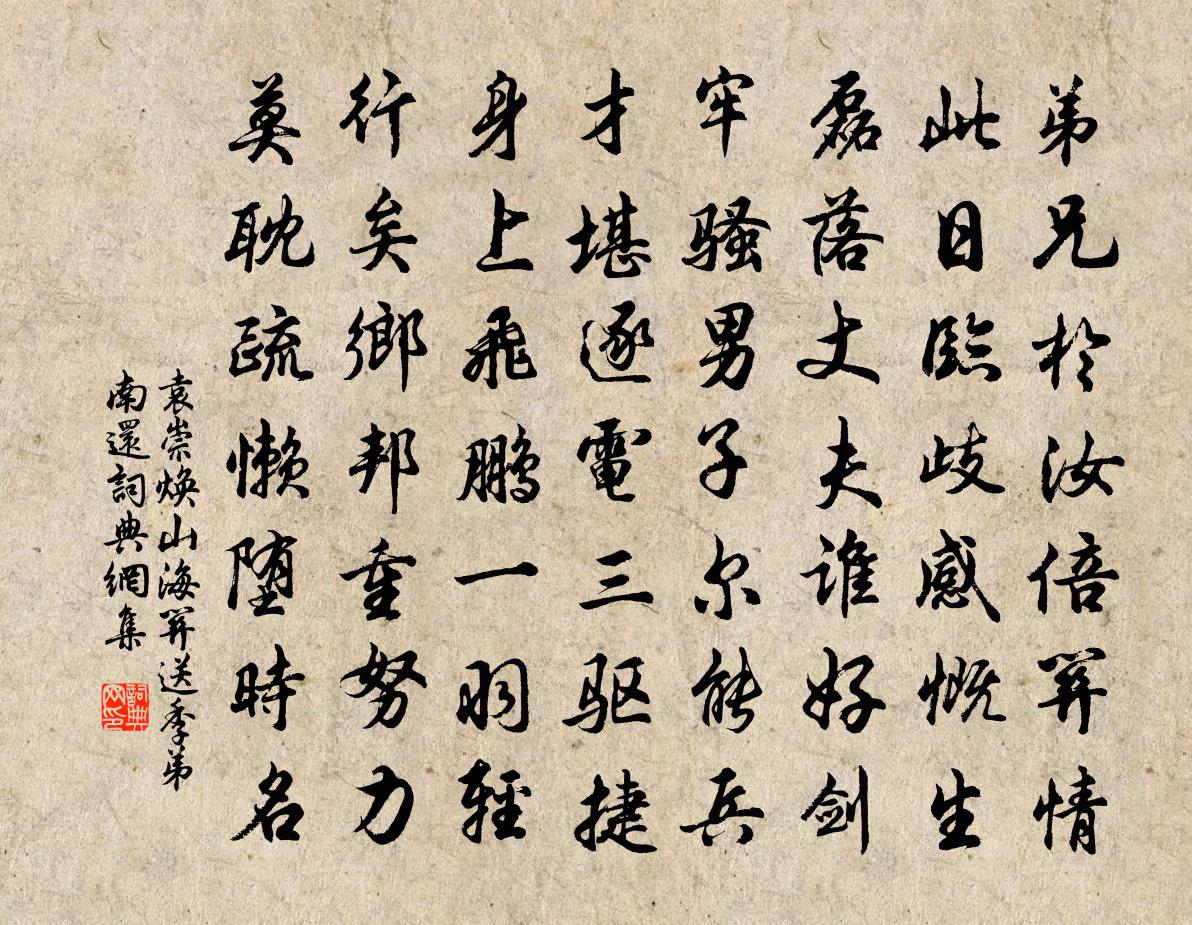 弟兄於汝倍關情
此日臨歧感慨生
磊落丈夫誰好劍
牢騷男子尔能兵
才堪逐電三驱捷
身上飛鵬一羽輕
行矣鄉邦重努力
莫耽疏懒堕時名
袁崇焕山海關送季弟
南還詞典網集
詞典网印